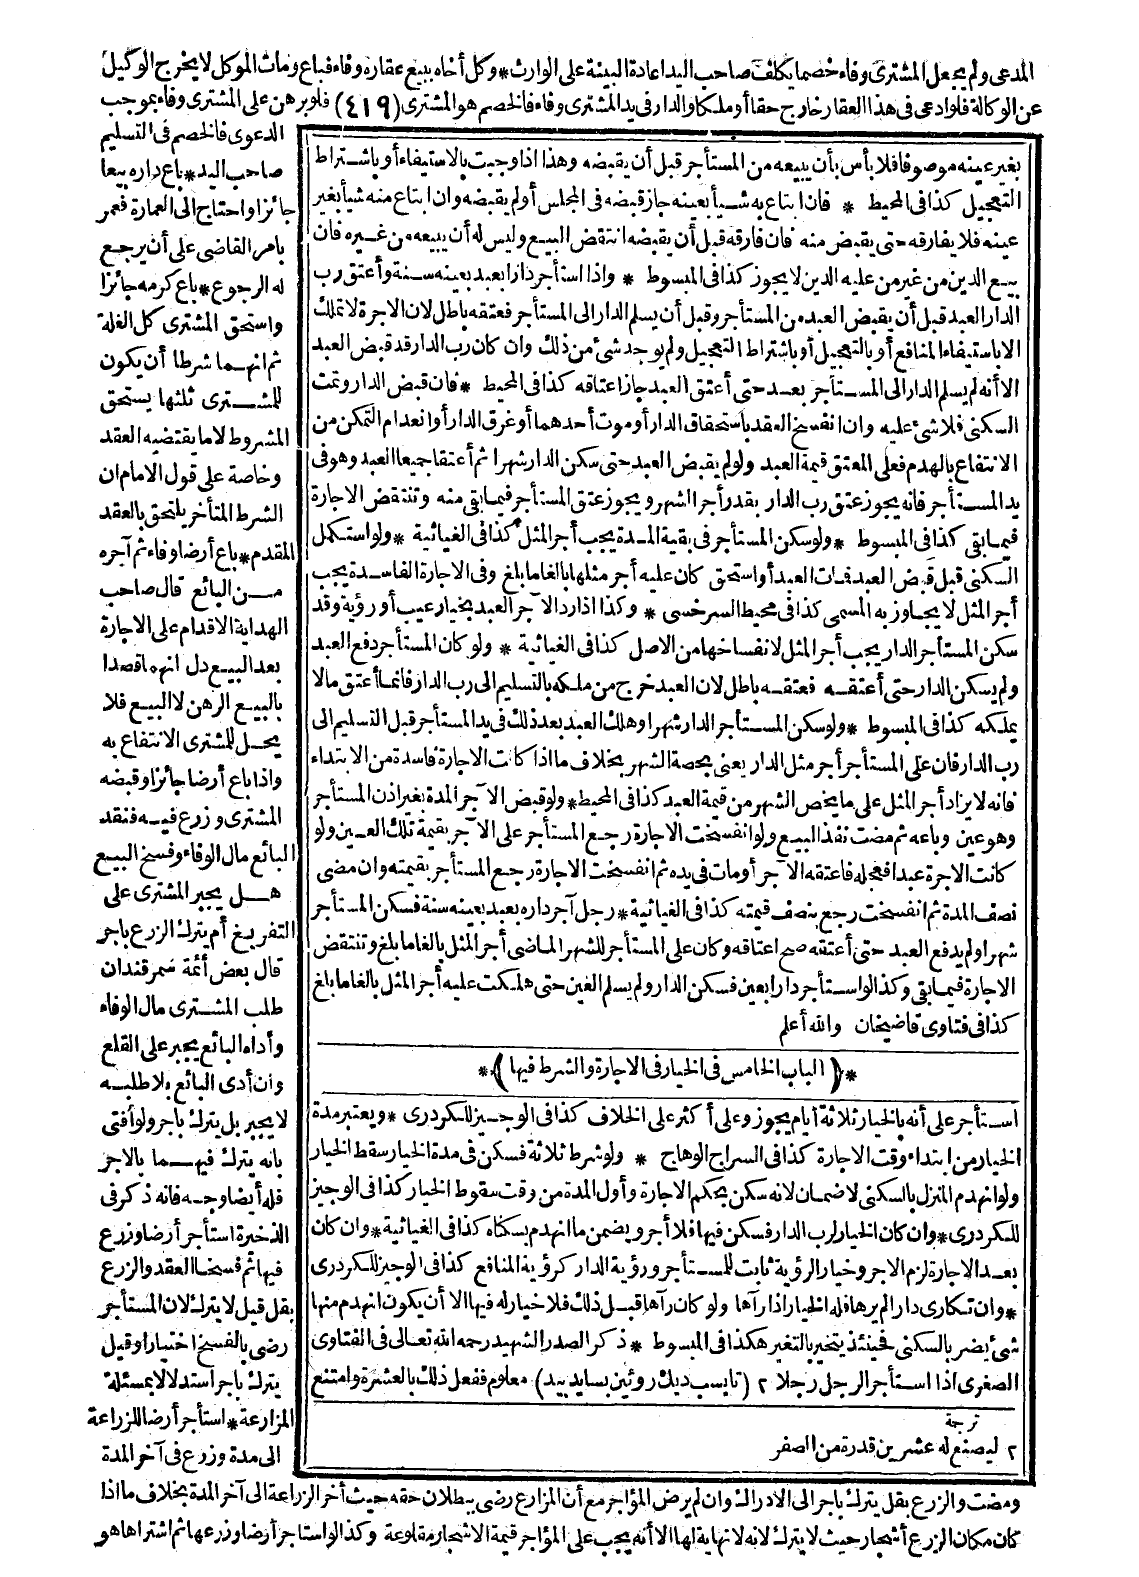 المدعى ولم يجعل المشترى وفاء خصما يكلف صاحب اليد اعادة البينة على الوارث * وكل أخاه ببيع عقاره وفاء فباع ومات الموكل لا يخرج الوكيل
عن الوكالة فلو ادعى فى هذا العقار خارج حقا أو ملكا والدار فى يد المشترى وفاء فالخصم هو المشترى (٤١٩) فلو برهن على المشترى وفاء بموجب
الدعوى فالخصم فى التسليم
صاحب اليد * باع داره بيعا
جائزا واحتاج الى العمارة فعمر
بامر القاضى على أن يرجع
له الرجوع * باع كرمه جائزا
واستحق المشترى كل الغلة
ثم انهما شرطا أن يكون
للمشترى ثلثها يستحق
المشروط لا ما يقتضيه العقد
وخاصة على قول الامام ان
الشرط المتأخر يلتحق بالعقد
المقدم * باع أرضا وفاء ثم آجره
من البائع قال صاحب
الهداية الاقدام على الاجارة
بعد البيع دل انهما قصدا
بالبيع الرهن لا البيع فلا
يحل للمشترى الانتفاع به
واذا باع أرضا جائزا وقبضه
المشترى وزرع فيه فنقد
البائع مال الوفاء وفسخ البيع
هل يجبر المشترى على
التفريغ أم يترك الزرع باجر
قال بعض أئمة سمرقند ان
طلب المشترى مال الوفاء
وأداه البائع يجبر على القلع
وان أدى البائع بلا طلبه
لا يجبر بل يترك باجر ولو أفتى
بانه يترك فيهما بالاجر
فله أيضا وجه فانه ذكر فى
الذخيرة استأجر أرضا وزرع
فيها ثم فسخا العقد والزرع
بقل قيل لا يترك لان المستأجر
رضى بالفسخ اختيارا وقيل
يترك باجر استدلالا بمسئلة
المزارعة * استأجر أرضا للزراعة
الى مدة وزرع فى آخر المدة
ومضت والزرع بقل يترك باجر الى الادراك وان لم يرض المؤاجر مع أن المزارع رضى ببطلان حقه حيث أخر الزراعة الى آخر المدة بخلاف ما اذا
كان مكان الزرع أشجار حيث لا يترك لانه لا نهاية لها الا أنه يجب على المؤاجر قيمة الاشجار مقلوعة وكذا لو استأجر أرضا وزرعها ثم اشتراها هو
بغير عينه موصوفا فلا بأس بأن يبيعه من المستأجر قبل أن يقبضه وهذا اذا وجبت بالاستيفاء أو باشتراط
التعجيل كذا فى المحيط * فان ابتاع به شيأ بعينه جاز قبضه فى المجلس أو لم يقبضه وان ابتاع منه شيأ بغير
عينه فلا يفارقه حتى يقبض منه فان فارقه قبل أن يقبضه انتقض البيع وليس له أن يبيعه من غيره فان
بيع الدين من غير من عليه الدين لا يجوز كذا فى المبسوط * واذا استأجر دارا بعبد بعينه سنة وأعتق رب
الدار العبد قبل أن يقبض العبد من المستأجر وقبل أن يسلم الدار الى المستأجر فعتقه باطل لان الاجرة لا تملك
الا باستيفاء المنافع أو بالتعجيل أو باشتراط التعجيل ولم يوجد شئ من ذلك وان كان رب الدار قد قبض العبد
الا أنه لم يسلم الدار الى المستأجر بعد حتى أعتق العبد جاز اعتاقه كذا فى المحيط * فان قبض الدار وتمت
السكنى فلا شئ عليه وان انفسخ العقد باستحقاق الدار أو موت أحدهما أو غرق الدار أو انعدام التمكن من
الانتفاع بالهدم فعلى المعتق قيمة العبد ولو لم يقبض العبد حتى سكن الدار شهرا ثم أعتقا جميعا العبد وهو فى
يد المستأجر فانه يجوز عتق رب الدار بقدر أجر الشهر ويجوز عتق المستأجر فيما بقى منه وتنتقض الاجارة
فيما بقى كذا فى المبسوط * ولو سكن المستأجر فى بقية المدة يجب أجر المثل كذا فى الغياثية * ولو استكمل
السكنى قبل قبض العبد فمات العبد أو استحق كان عليه أجر مثلها بالغا ما بلغ وفى الاجارة الفاسدة يجب
أجر المثل لا يجاوز به المسمى كذا فى محيط السرخسى * وكذا اذا رد الآجر العبد بخيار عيب أو رؤية وقد
سكن المستأجر الدار يجب أجر المثل لانفساخها من الاصل كذا فى الغياثية * ولو كان المستأجر دفع العبد
ولم يسكن الدار حتى أعتقه فعتقه باطل لان العبد خرج من ملكه بالتسليم الى رب الدار فانما أعتق مالا
يملكه كذا فى المبسوط * ولو سكن المستأجر الدار شهرا وهلك العبد بعد ذلك فى يد المستأجر قبل التسليم الى
رب الدار فان على المستأجر أجر مثل الدار يعنى بحصة الشهر بخلاف ما اذا كانت الاجارة فاسدة من الابتداء
فانه لا يزاد أجر المثل على ما يخص الشهر من قيمة العبد كذا فى المحيط * ولو قبض الآجر المدة بغير اذن المستأجر
وهو عين وباعه ثم مضت نفذ البيع ولو انفسخت الاجارة رجع المستأجر على الآجر بقيمة تلك العين ولو
كانت الاجرة عبدا فعجله فاعتقه الآجر أو مات فى يده ثم انفسخت الاجارة رجع المستأجر بقيمته وان مضى
نصف المدة ثم انفسخت رجع بنصف قيمته كذا فى الغياثية * رجل آجر داره بعبد بعينه سنة فسكن المستأجر
شهرا ولم يدفع العبد حتى أعتقه صح اعتاقه وكان على المستأجر للشهر الماضى أجر المثل بالغا ما بلغ وتنتقض
الاجارة فيما بقى وكذا لو استأجر دارا بعين فسكن الدار ولم يسلم العين حتى هلكت عليه أجر المثل بالغا ما بلغ
كذا فى فتاوى قاضيخان والله أعلم
*(الباب الخامس فى الخيار فى الاجارة والشرط فيها)*
استأجر على أنه بالخيار ثلاثة أيام يجوز وعلى أكثر على الخلاف كذا فى الوجيز للكردرى * ويعتبر مدة
الخيار من ابتداء وقت الاجارة كذا فى السراج الوهاج * ولو شرط ثلاثة فسكن فى مدة الخيار سقط الخيار
ولو انهدم المنزل بالسكنى لا ضمان لانه سكن بحكم الاجارة وأول المدة من وقت سقوط الخيار كذا فى الوجيز
للكردرى * وان كان الخيار لرب الدار فسكن فيها فلا أجر ويضمن ما انهدم بسكناه كذا فى الغياثية * وان كان
بعد الاجارة لزم الاجر وخيار الرؤية ثابت للمستأجر ورؤية الدار كرؤية المنافع كذا فى الوجيز للكردرى
* وان تكارى دارا لم يرها فله الخيار اذا رآها ولو كان رآها قبل ذلك فلا خيار له فيها الا أن يكون انهدم منها
شئ يضر بالسكنى فحينئذ يتخير بالتغير هكذا فى المبسوط * ذكر الصدر الشهيد رحمه الله تعالى فى الفتاوى
الصغرى اذا استأجر الرجل رجلا ٢ (تا بيست ديك روئين بسايد بيد) معلوم ففعل ذلك بالعشرة وامتنع
ترجمة
٢ ليصنع له عشرين قدرة من الصفر